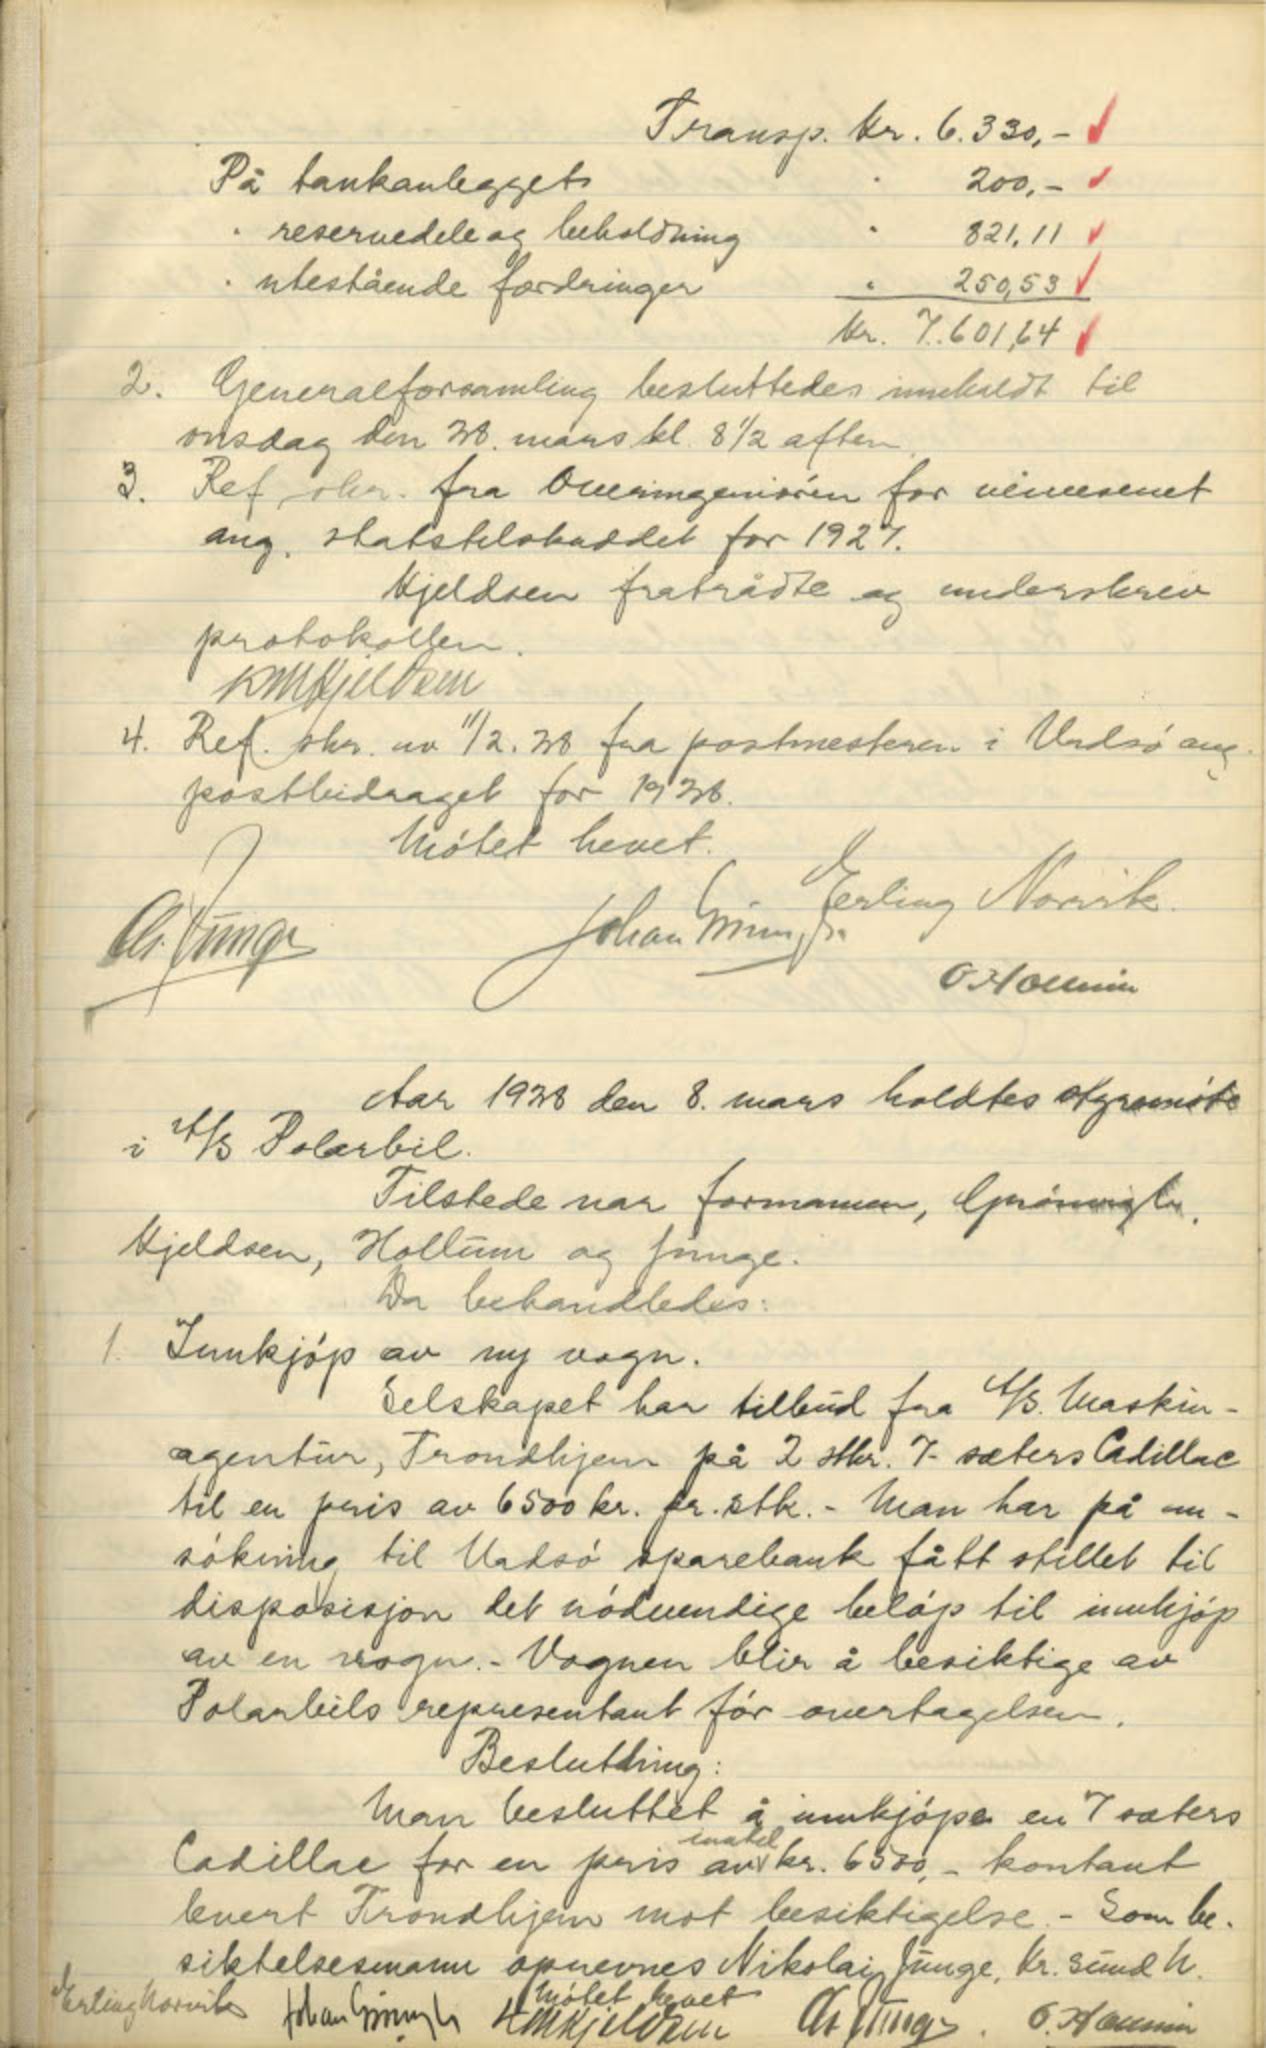 Transp. kr. 6.330,-
På tankanlegget " 200,-
" reservedele og beholdning " 821,11
" utestående fordringer " 250,53
kr. 7.601,64
2. Generalforsamling besluttedes innkaldt til
onsdag den 28. mars kl. 8 1/2 aften.
3. Ref. skr. fra Overingeniören for veivesenet
ang. statstilskuddet for 1927.
Kjeldsen fratrådte og underskrev
protokollen.
KMKjeldsen
4. Ref. skr. av 11/2.28 fra postmesteren i Vadsö ang.
postbidraget for 1928.
Mötet hevet.
Erling Norvik.
Chr. Junge Johan Grönvigh
O. Hollum
Aar 1928 den 8. mars holdtes styremöte
i A/S Polarbil.
Tilstede var formannen, Grönvigh,
Kjeldsen, Hollum og Junge.
Da behandledes:
1. Innkjöp av ny vogn.
Selskapet har tilbud fra A/S. Maskin-
agentur, Trondhjem på 2 stkr. 7- sæters Cadillac
til en pris av 6500 kr. pr. stk. - Man har på an-
sökning til Vadsö sparebank fått stillet til
disposisjon det nödvendige belöp til innkjöp
av en vogn. - Vognen blir å besiktige av
Polarbils representant för overtagelsen.
Beslutning:
Man besluttet å innkjöpe en 7 sæters
Cadillac for en pris av inntil kr. 6500,- kontant
levert Trondhjem mot besiktigelse. - Som be-
siktelsesmann opnevnes Nikolai Junge, Kr. sund N.
Mötet hevet
Erling Norvik Johan Grönvigh KMKjeldsen Chr. Junge. O. Hollum